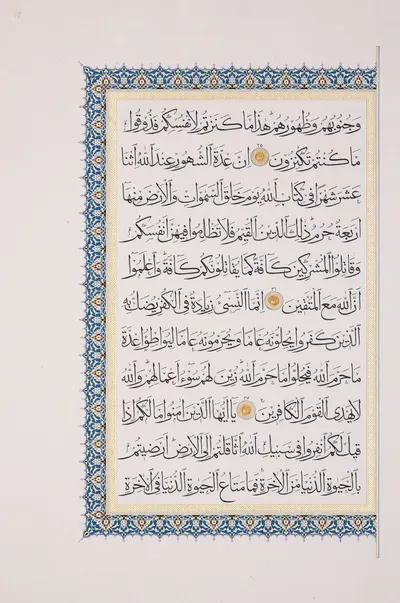 وَجُنُوبُهُمْ وَظُهُورُهُمْ هٰذَا مَا كَنَزْتُمْ لِاَنْفُسِكُمْ فَذُوقُوا
مَا كُنْتُمْ تَكْنِزُونَ ۝ اِنَّ عِدَّةَ الشُّهُورِ عِنْدَ اللّٰهِ اثْنَا
عَشَرَ شَهْرًا فِى كِتَابِ اللّٰهِ يَوْمَ خَلَقَ السَّمٰوَاتِ وَالْاَرْضَ مِنْهَا
اَرْبَعَةٌ حُرُمٌ ذٰلِكَ الدِّينُ الْقَيِّمُ فَلَا تَظْلِمُوا فِيهِنَّ اَنْفُسَكُمْ
وَقَاتِلُوا الْمُشْرِكِينَ كَافَّةً كَمَا يُقَاتِلُونَكُمْ كَافَّةً وَاعْلَمُوا
اَنَّ اللّٰهَ مَعَ الْمُتَّقِينَ ۝ اِنَّمَا النَّسِىءُ زِيَادَةٌ فِى الْكُفْرِ يُضَلُّ بِهِ
الَّذِينَ كَفَرُوا يُحِلُّونَهُ عَامًا وَيُحَرِّمُونَهُ عَامًا لِيُوَاطِؤُا عِدَّةَ
مَا حَرَّمَ اللّٰهُ فَيُحِلُّوا مَا حَرَّمَ اللّٰهُ زُيِّنَ لَهُمْ سُوءُ اَعْمَالِهِمْ وَاللّٰهُ
لَا يَهْدِى الْقَوْمَ الْكَافِرِينَ ۝ يَا اَيُّهَا الَّذِينَ اٰمَنُوا مَا لَكُمْ اِذَا
قِيلَ لَكُمُ انْفِرُوا فِى سَبِيلِ اللّٰهِ اثَّاقَلْتُمْ اِلَى الْاَرْضِ اَرَضِيتُمْ
بِالْحَيٰوةِ الدُّنْيَا مِنَ الْاٰخِرَةِ فَمَا مَتَاعُ الْحَيٰوةِ الدُّنْيَا فِى الْاٰخِرَةِ